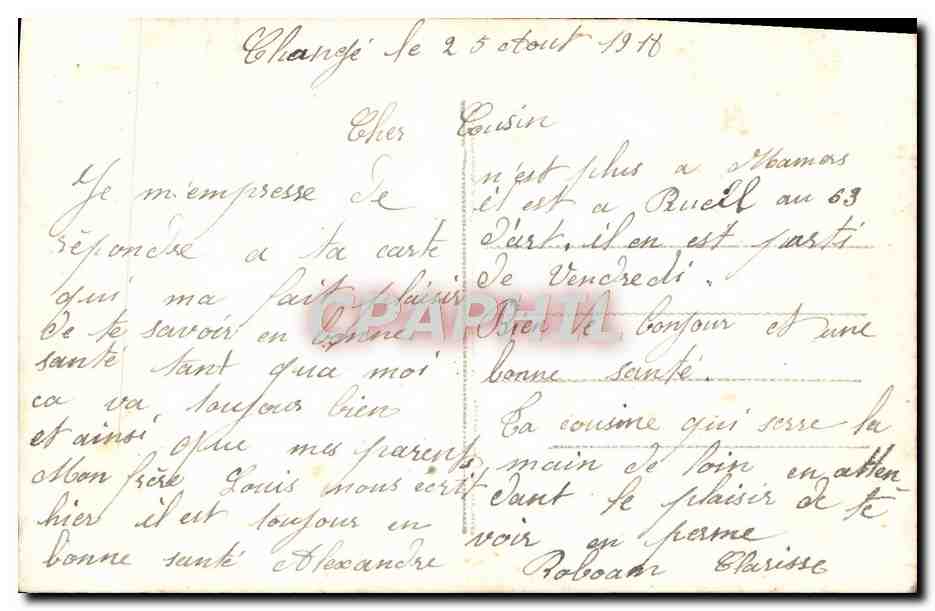 Changé le 25 Aout 1918
Cher Cousin
Je m'empresse de
répondre a ta carte
qui ma fait plaisir
de te savoir en bonne
santé tant qua moi
ca va toujour bien
et ainsi que mes parents
Mon frère Louis nous ecrit
hier il est toujour en
bonne santé Alexandre
n'est plus a Mamers
il est a Rueil au 63
d'art. il en est parti
de Vendredi.
Bien le bonjour et une
bonne santé.
Ta cousine qui serre la
main de loin en atten
dant le plaisir de te
voir en perme
Roboam Clarisse
CPAPHIL